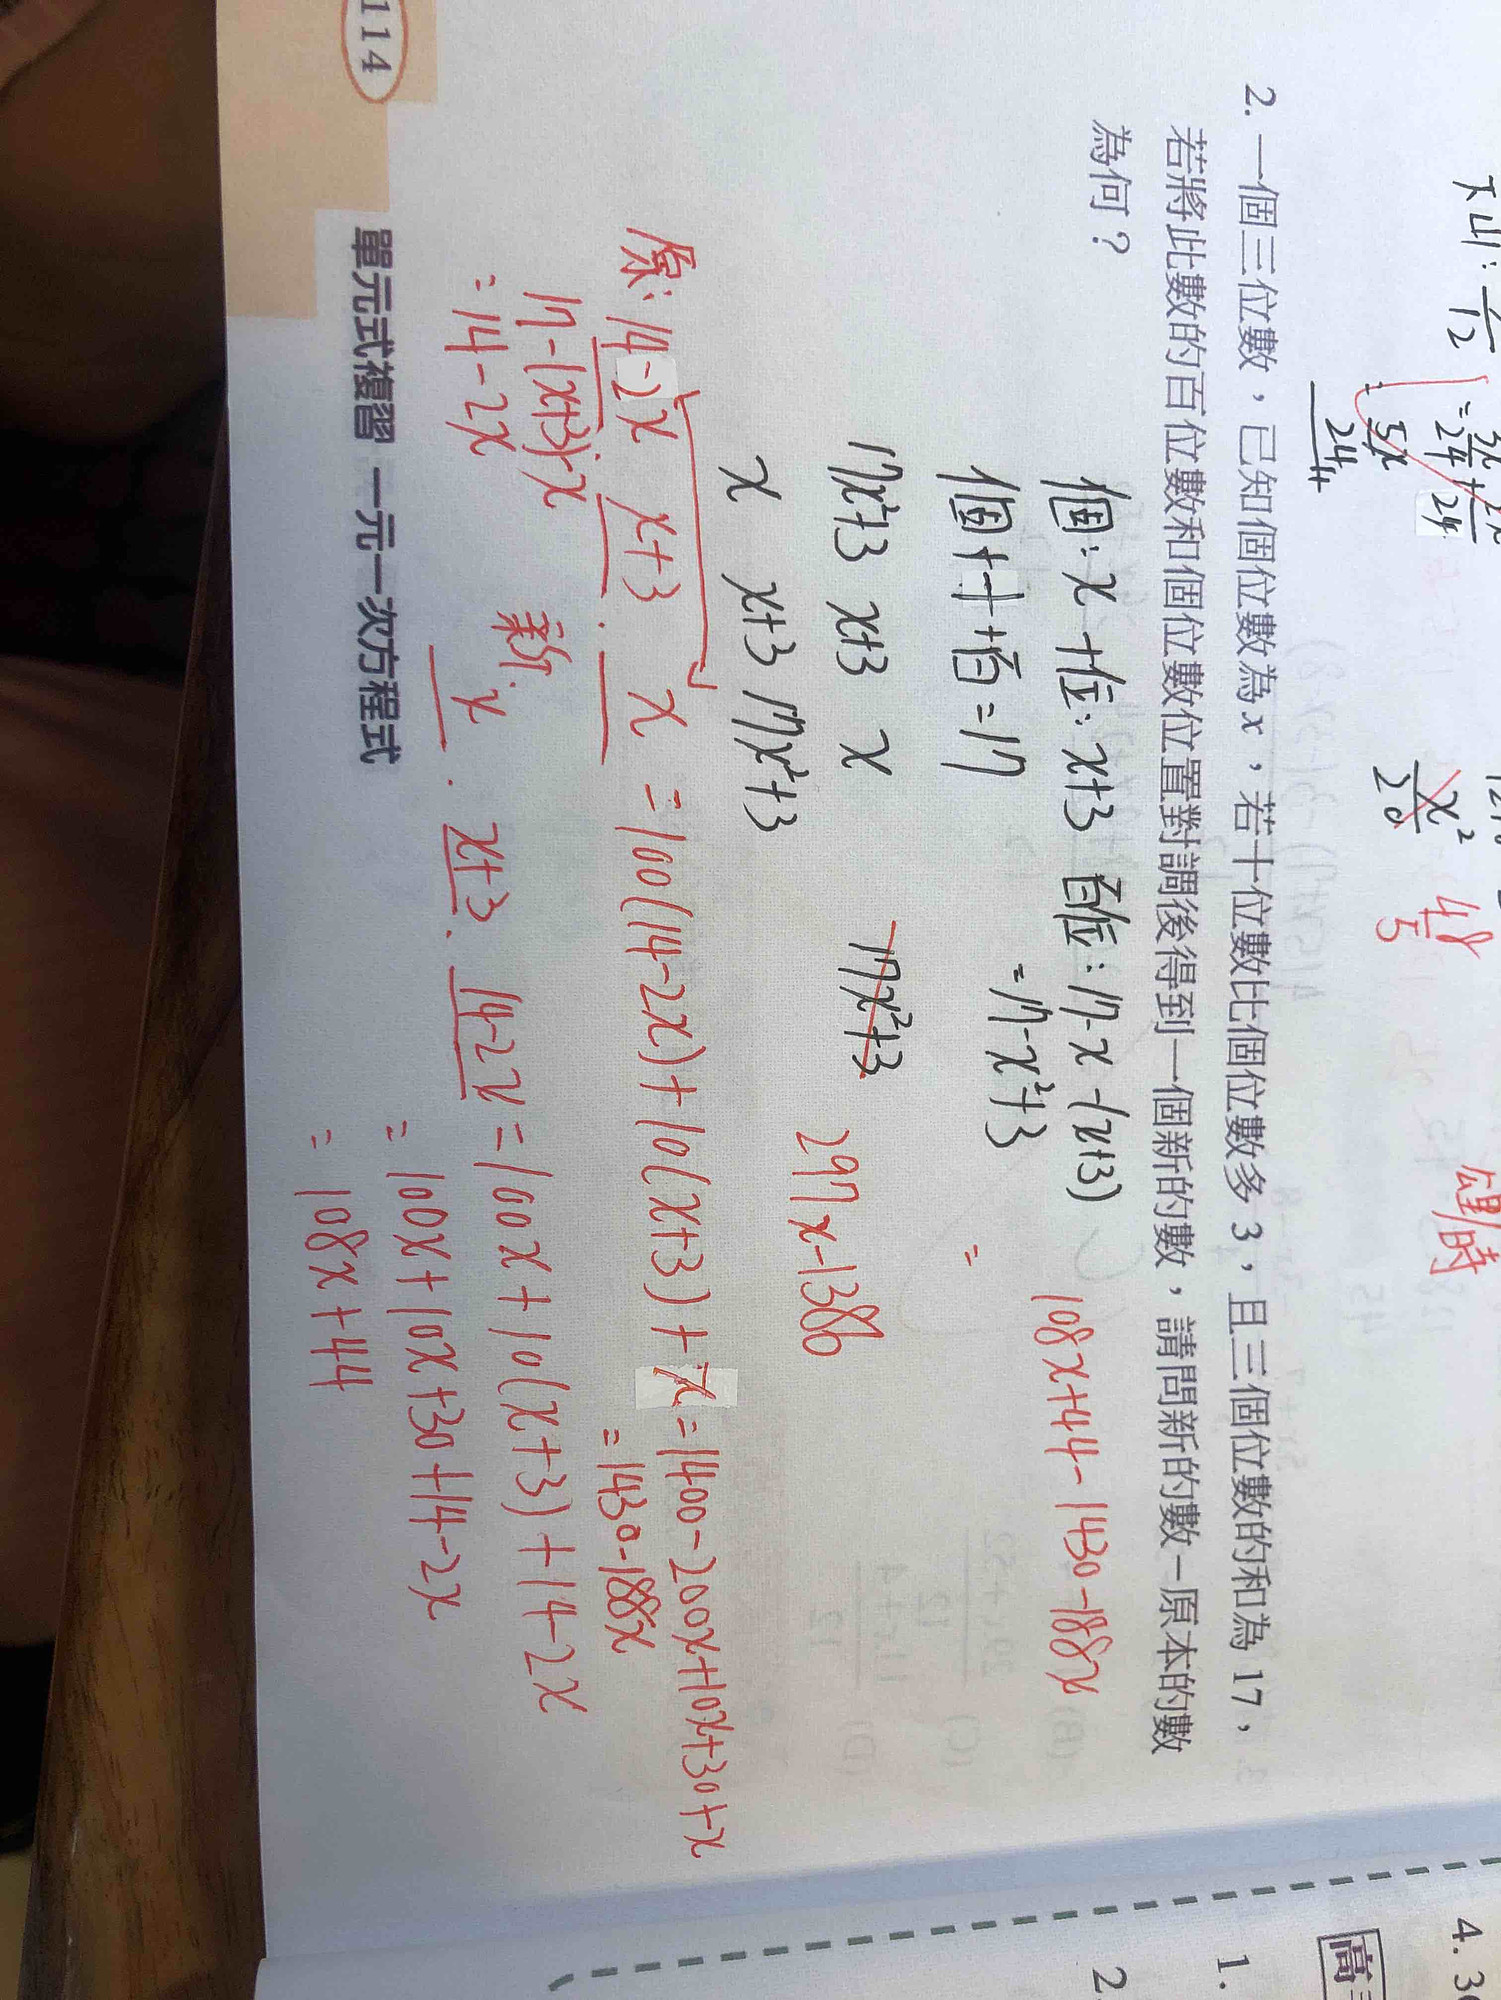 2. 一個三位數，已知個位數為x，若十位數比個位數多3，且三個位數的和為17，
若將此數的百位數和個位數位置對調後得到一個新的數，請問新的數－原本的數
為何？
個:x 十位:x+3 百位:17-x-(x+3)
=17-x²+3
個+十+百=17
=
108x+44-1430-188x
17x²+3 x+3 x
17x²+3
x x+3 17x²+3
297x-1386
原: 14-2x x+3 x =100(14-2x)+10(x+3)+x=1400-200x+10x+30+x
=1430-188x
17-(x+3)-x
=14-2x
新: x x+3 14-2x =100x+10(x+3)+14-2x
=100x+10x+30+14-2x
=108x+44
114
單元式複習 一元一次方程式
12
24
5x
24
x²
20
48
5
小時
4.
1.
2.